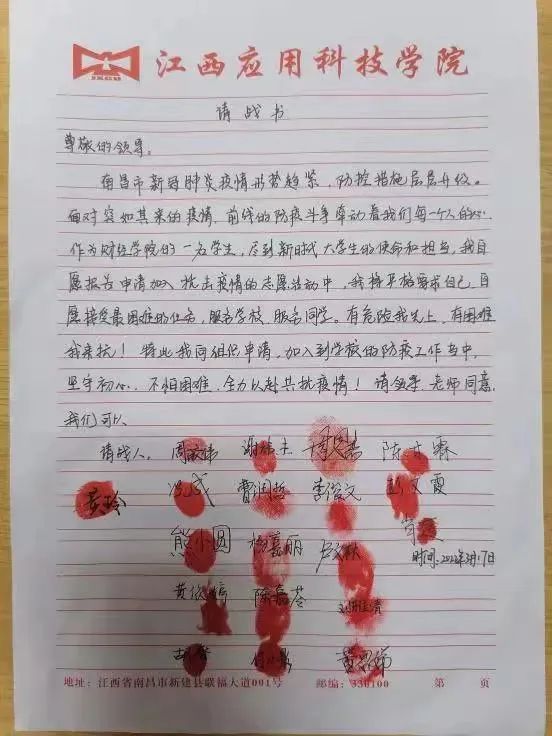 江西应用科技学院
请战书
尊敬的领导：
南昌市新冠肺炎疫情形势趋紧，防控措施层层升级。
面对突如其来的疫情，前线的防疫斗争牵动着我们每一个人的心。
作为财经学院的一名学生，尽到新时代大学生的使命和担当，我自
愿报名申请加入抗击疫情的志愿活动中，我将严格要求自己，自
愿接受最困难的任务，服务学校，服务同学。有危险我先上，有困难
我来扛！特此我向组织申请，加入到学校的防疫工作当中，
坚守初心，不怕困难，全力以赴共抗疫情！请领导、老师同意，
我们可以。
请战人：
曹润哲 李俊文
熊小圆 杨嘉丽
时间：2022年3月17日
地址：江西省南昌市新建县联福大道001号 邮编：330100 第 页